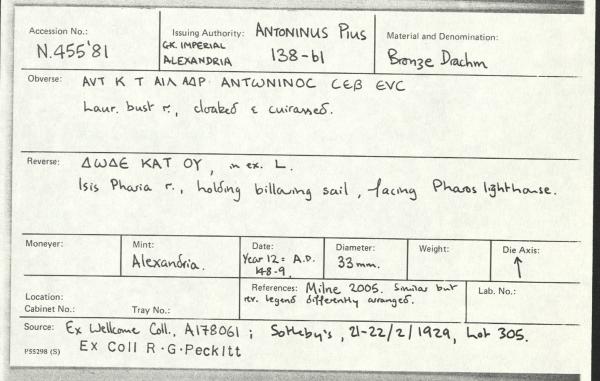 Accession No.:
N.455'81
Issuing Authority: ANTONINUS PIUS
GK. IMPERIAL
ALEXANDRIA 138-61
Material and Denomination:
Bronze Drachm
Obverse: ΑVΤ Κ Τ ΑΙΛ ΑΔΡ ΑΝΤΩΝΙΝΟC CΕΒ ΕVC
Laur. bust r., cloaked & cuirassed.
Reverse: ΔΩΔΕ ΚΑΤ ΟΥ, in ex. L.
Isis Pharia r., holding billowing sail, facing Pharos lighthouse.
Moneyer:
Mint:
Alexandria.
Date:
Year 12 = A.D.
148-9.
Diameter:
33mm.
Weight:
Die Axis:
↑
Location:
Cabinet No.: Tray No.:
References: Milne 2005. Similar but
rev. legend differently arranged.
Lab. No.:
Source: Ex Wellcome Coll., A178061; Sotheby's, 21-22/2/1929, Lot 305.
P55298 (S) Ex Coll R.G.Peckitt